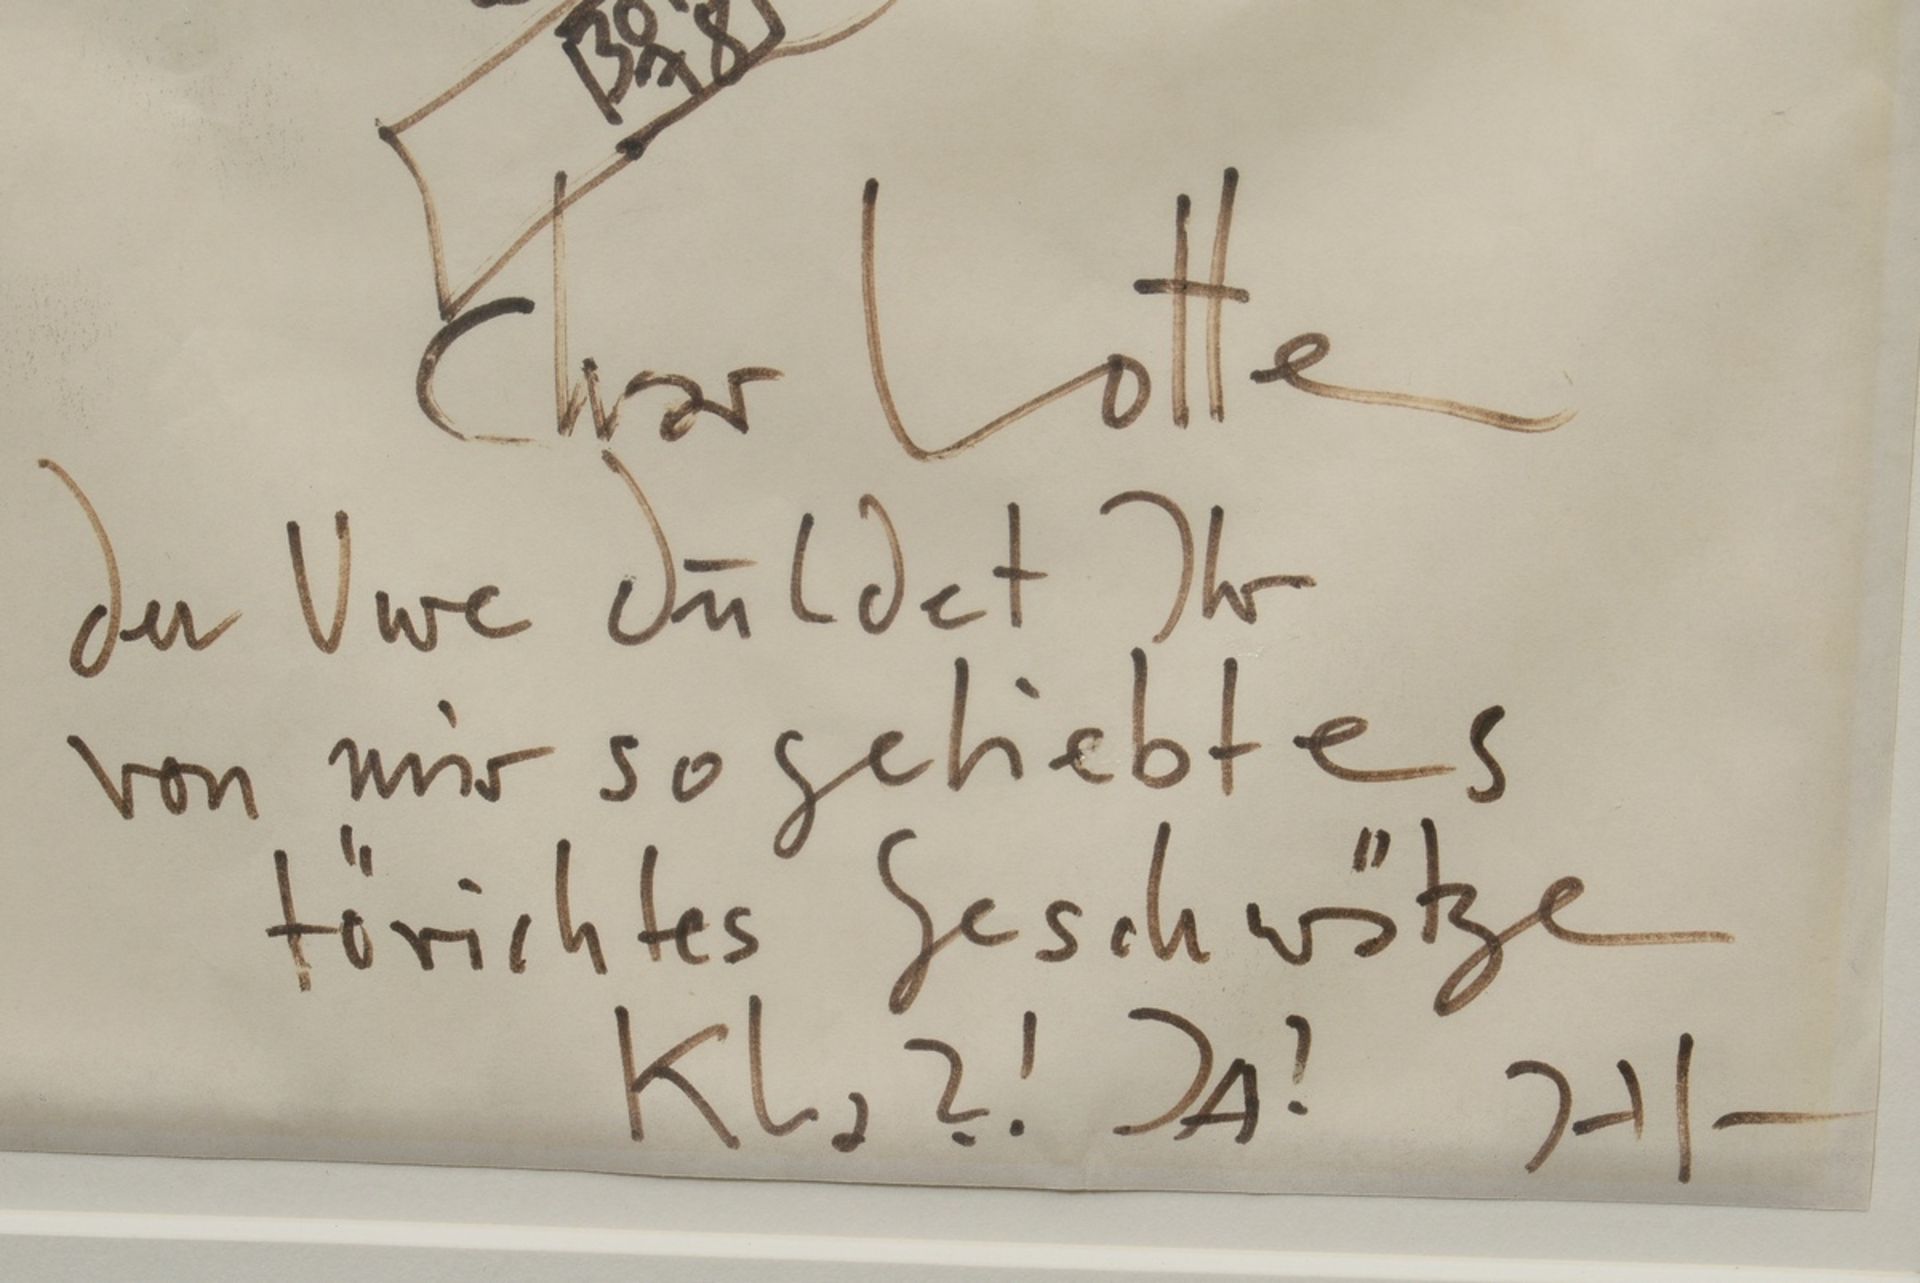 Char Lotte
der Uwe duldet Ihr
von mir so geliebtes
törichtes Geschwätze
KL, ?! JA!